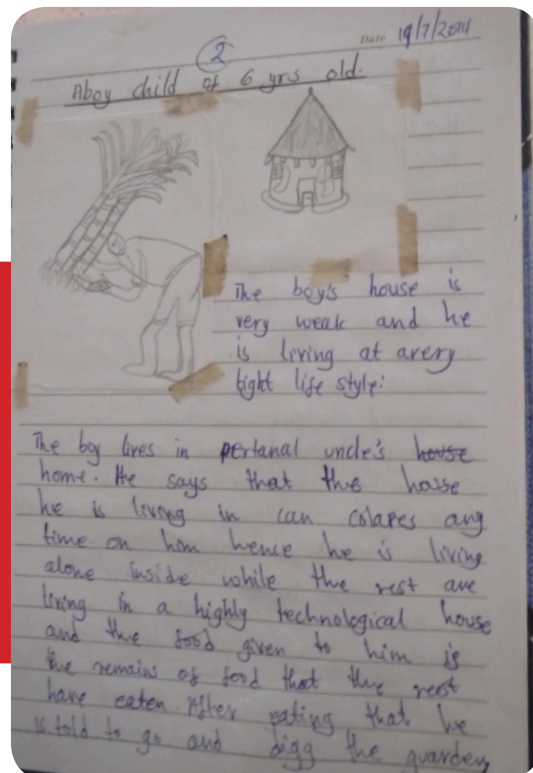 Date 19/7/2014
2
Aboy child of 6 yrs old.
The boy's house is
very weak and he
is living at avery
tight life style:
The boy lives in pertanal uncle's house
home. He says that the house
he is living in can colapes any
time on him hence he is living
alone inside while the rest are
living in a highly technological house
and the food given to him is
the remains of food that the rest
have eaten. After eating that he
is told to go and digg the guarden,